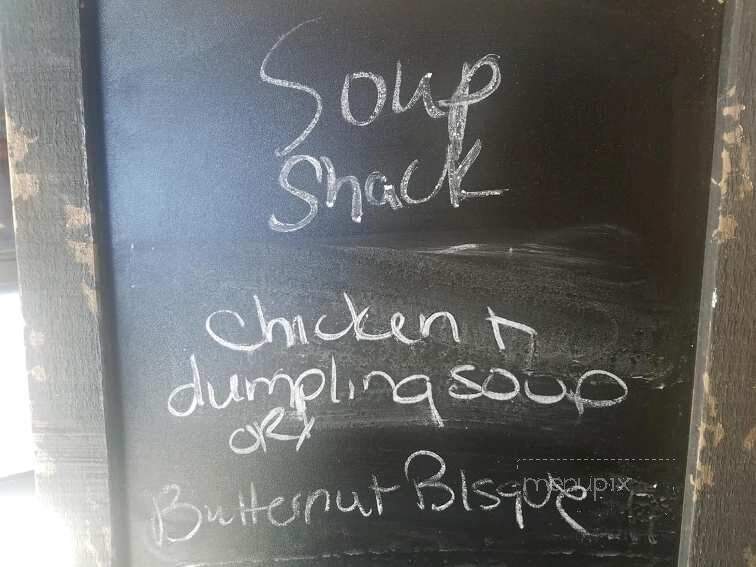 Soup
Shack
Chicken n
dumpling soup
OR
Butternut Bisque
menupix